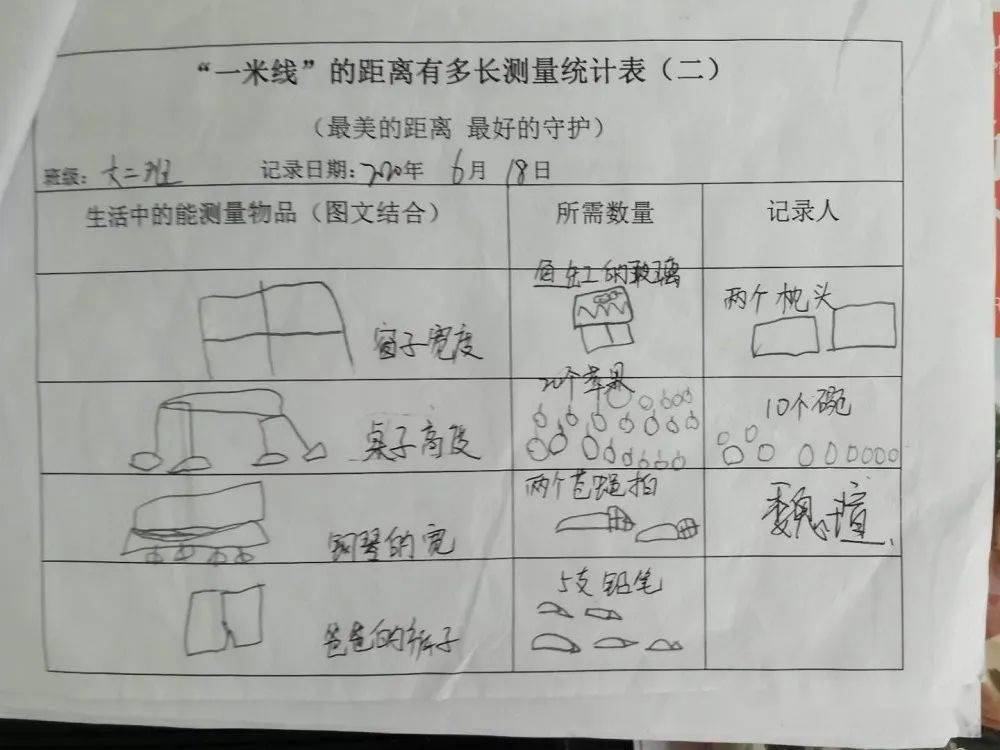 “一米线”的距离有多长测量统计表（二）
（最美的距离 最好的守护）
班级：大二班 记录日期：2020年 6月 18日
生活中的能测量物品（图文结合） 所需数量 记录人
窗子宽度 鱼缸的玻璃 两个枕头
桌子高度 20个苹果 10个碗
钢琴的宽 两个苍蝇拍 魏
爸爸的裤子 5支铅笔